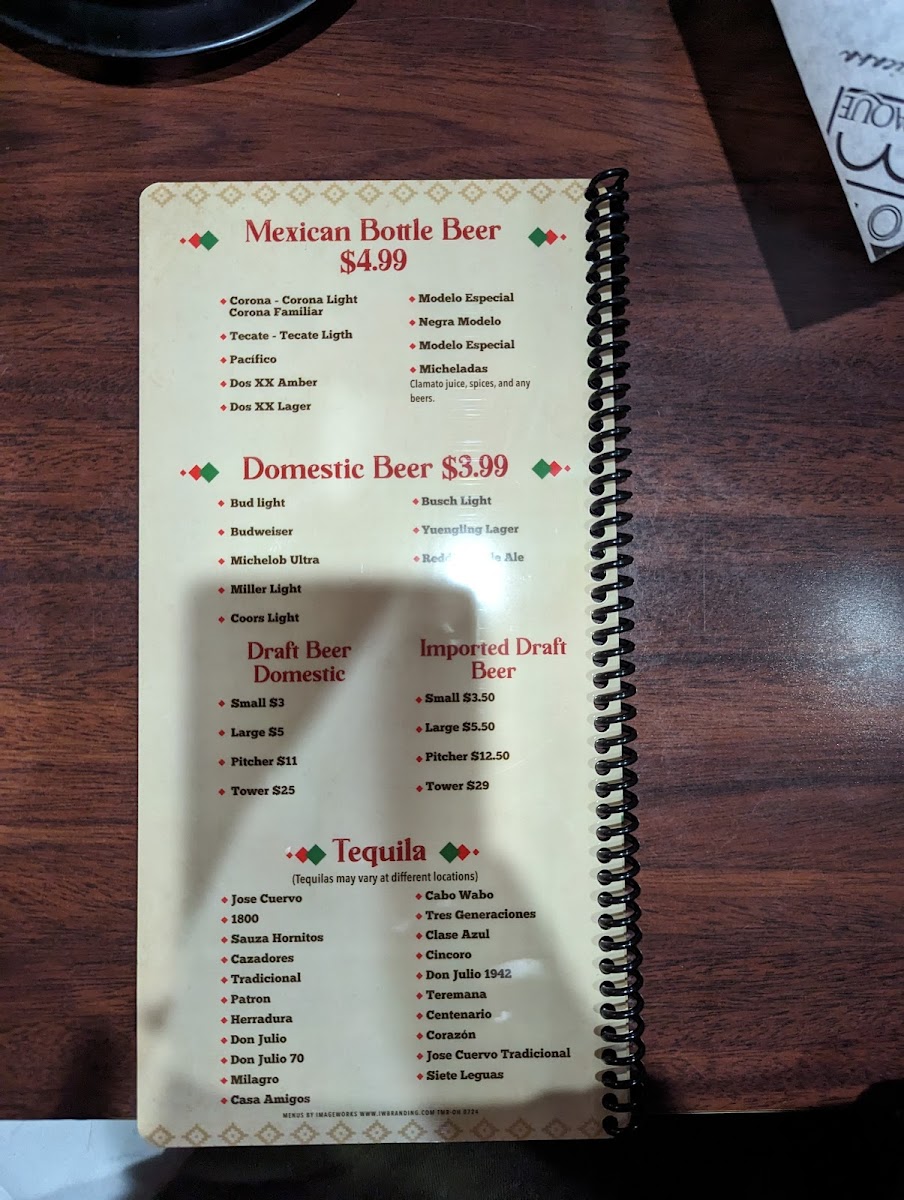 Mexican Bottle Beer
$4.99
Corona - Corona Light
Corona Familiar
Tecate - Tecate Ligth
Pacífico
Dos XX Amber
Dos XX Lager
Modelo Especial
Negra Modelo
Modelo Especial
Micheladas
Clamato juice, spices, and any
beers.
Domestic Beer $3.99
Bud light
Budweiser
Michelob Ultra
Miller Light
Coors Light
Busch Light
Yuengling Lager
Ale
Draft Beer
Domestic
Small $3
Large $5
Pitcher $11
Tower $25
Imported Draft
Beer
Small $3.50
Large $5.50
Pitcher $12.50
Tower $29
Tequila
(Tequilas may vary at different locations)
Jose Cuervo
1800
Sauza Hornitos
Cazadores
Tradicional
Patron
Herradura
Don Julio
Don Julio 70
Milagro
Casa Amigos
Cabo Wabo
Tres Generaciones
Clase Azul
Cincoro
Don Julio 1942
Teremana
Centenario
Corazón
Jose Cuervo Tradicional
Siete Leguas
MENUS BY IMAGEWORKS WWW.IWBRANDING.COM TMB-OH 0724